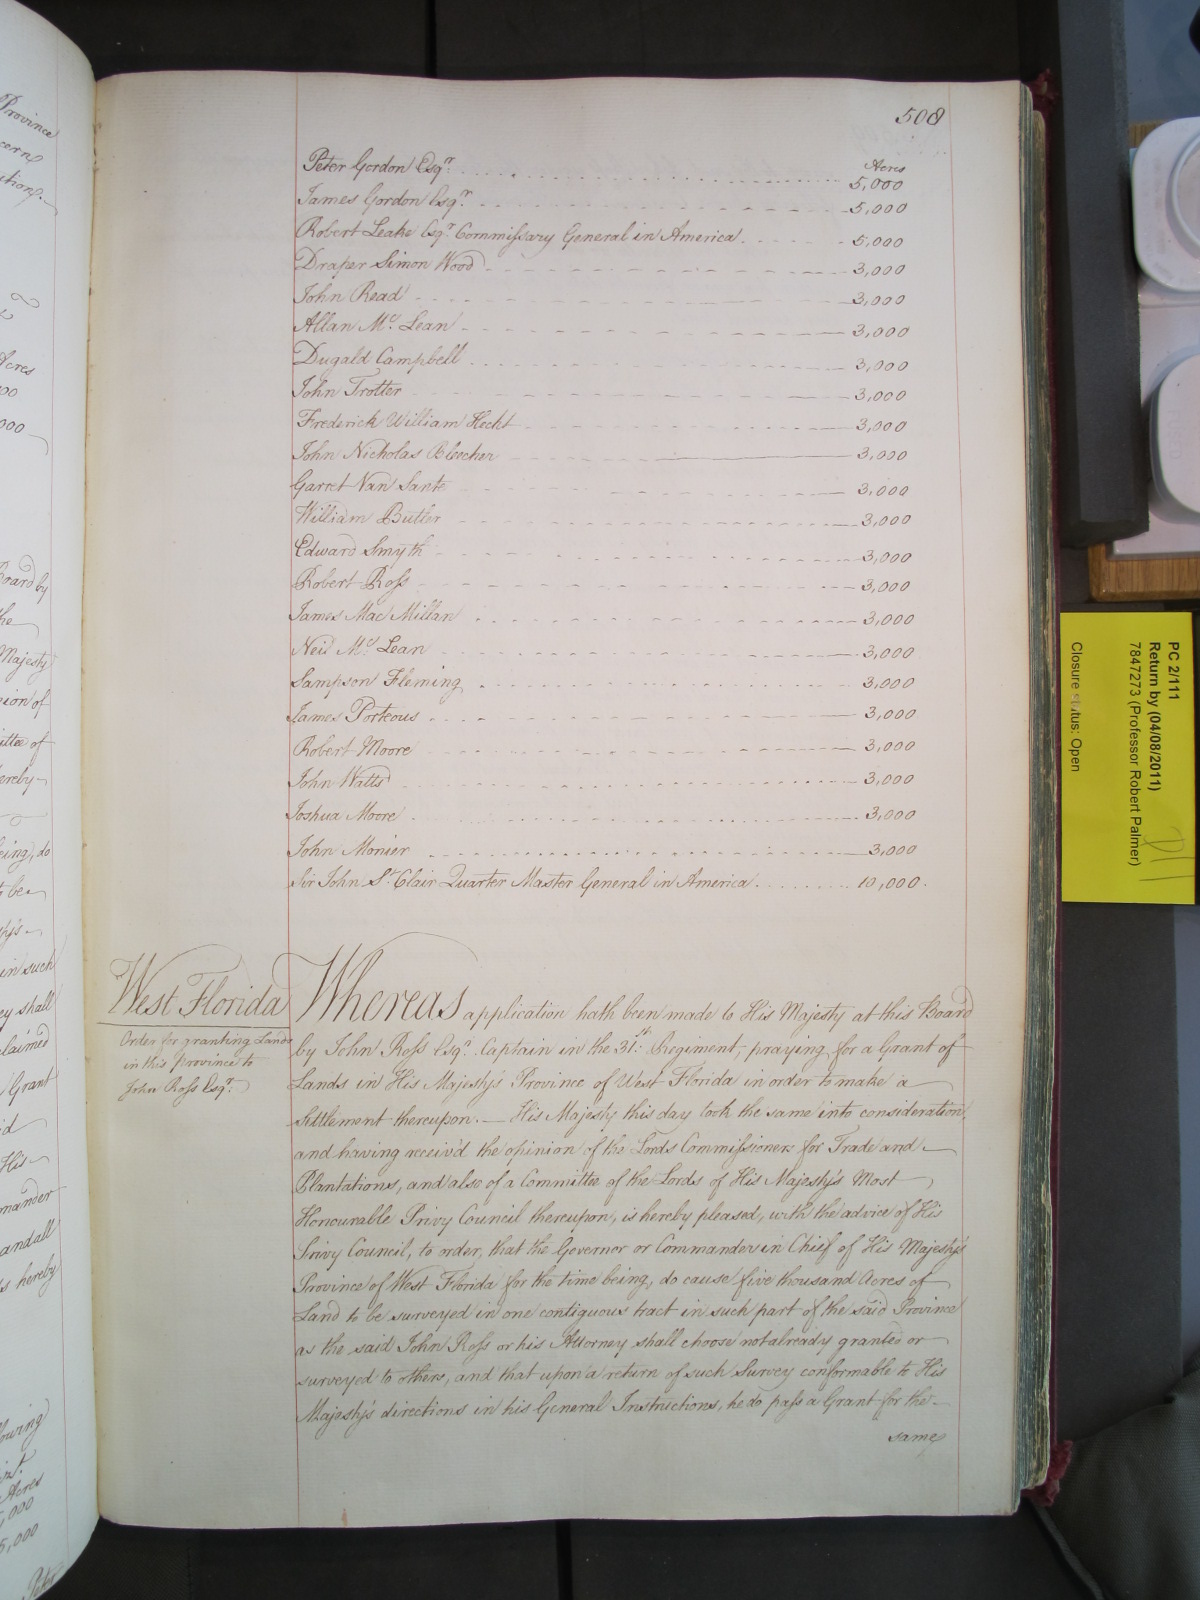 508
Acres
Peter Gordon Esqr. 5,000
James Gordon Esqr. 5,000
Robert Leake Esqr. Commissary General in America 5,000
Draper Simon Wood 3,000
John Read 3,000
Allan Mc. Lean 3,000
Dugald Campbell 3,000
John Trotter 3,000
Frederick William Hecht 3,000
John Nicholas Bleecker 3,000
Garret Van Sante 3,000
William Butler 3,000
Edward Smyth 3,000
Robert Ross 3,000
James Mac Millan 3,000
Neil Mc. Lean 3,000
Sampson Fleming 3,000
James Porteous 3,000
Robert Moore 3,000
John Watts 3,000
Joshua Moore 3,000
John Monier 3,000
Sir John St. Clair Quarter Master General in America 10,000.
West Florida
Order for granting Lands
in this province to
John Ross Esqr.
Whereas application hath been made to His Majesty at this Board
by John Ross Esqr. Captain in the 31st. Regiment, praying for a Grant of
Lands in His Majesty's Province of West Florida in order to make a
Settlement thereupon. — His Majesty this day took the same into consideration,
and having receiv'd the opinion of the Lords Commissioners for Trade and
Plantations, and also of a Committee of the Lords of His Majesty's Most
Honourable Privy Council thereupon, is hereby pleased, with the advice of His
Privy Council, to order, that the Governor or Commander in Chief of His Majesty's
Province of West Florida for the time being, do cause five thousand Acres of
Land to be surveyed in one contiguous tract in such part of the said Province
as the said John Ross or his Attorney shall choose not already granted or
surveyed to others, and that upon a return of such Survey conformable to His
Majesty's directions in his General Instructions, he do pass a Grant for the
same
PC 2/111
Return by (04/08/2011)
7847273 (Professor Robert Palmer)
Closure status: Open